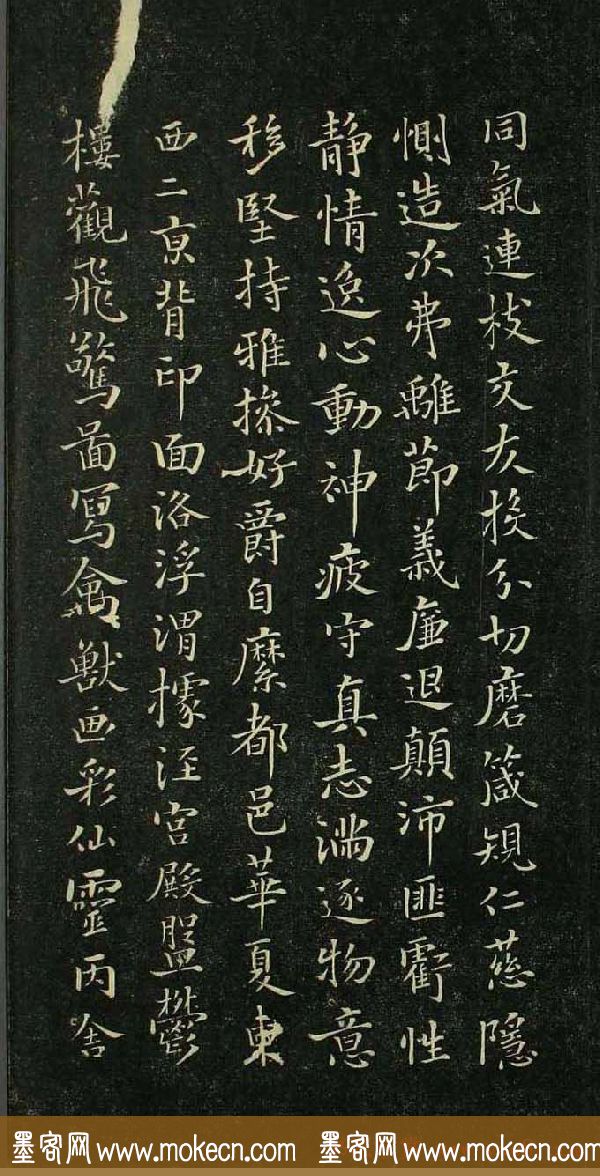 同氣連枝交友投分切磨箴規仁慈隱
惻造次弗離節義廉退顛沛匪虧性
靜情逸心動神疲守真志滿逐物意
移堅持雅操好爵自縻都邑華夏東
西二京背邙面洛浮渭據涇宮殿盤鬱
樓觀飛驚圖寫禽獸画彩仙靈丙舍
墨客网 www.mokecn.com 墨客网 www.mokecn.com